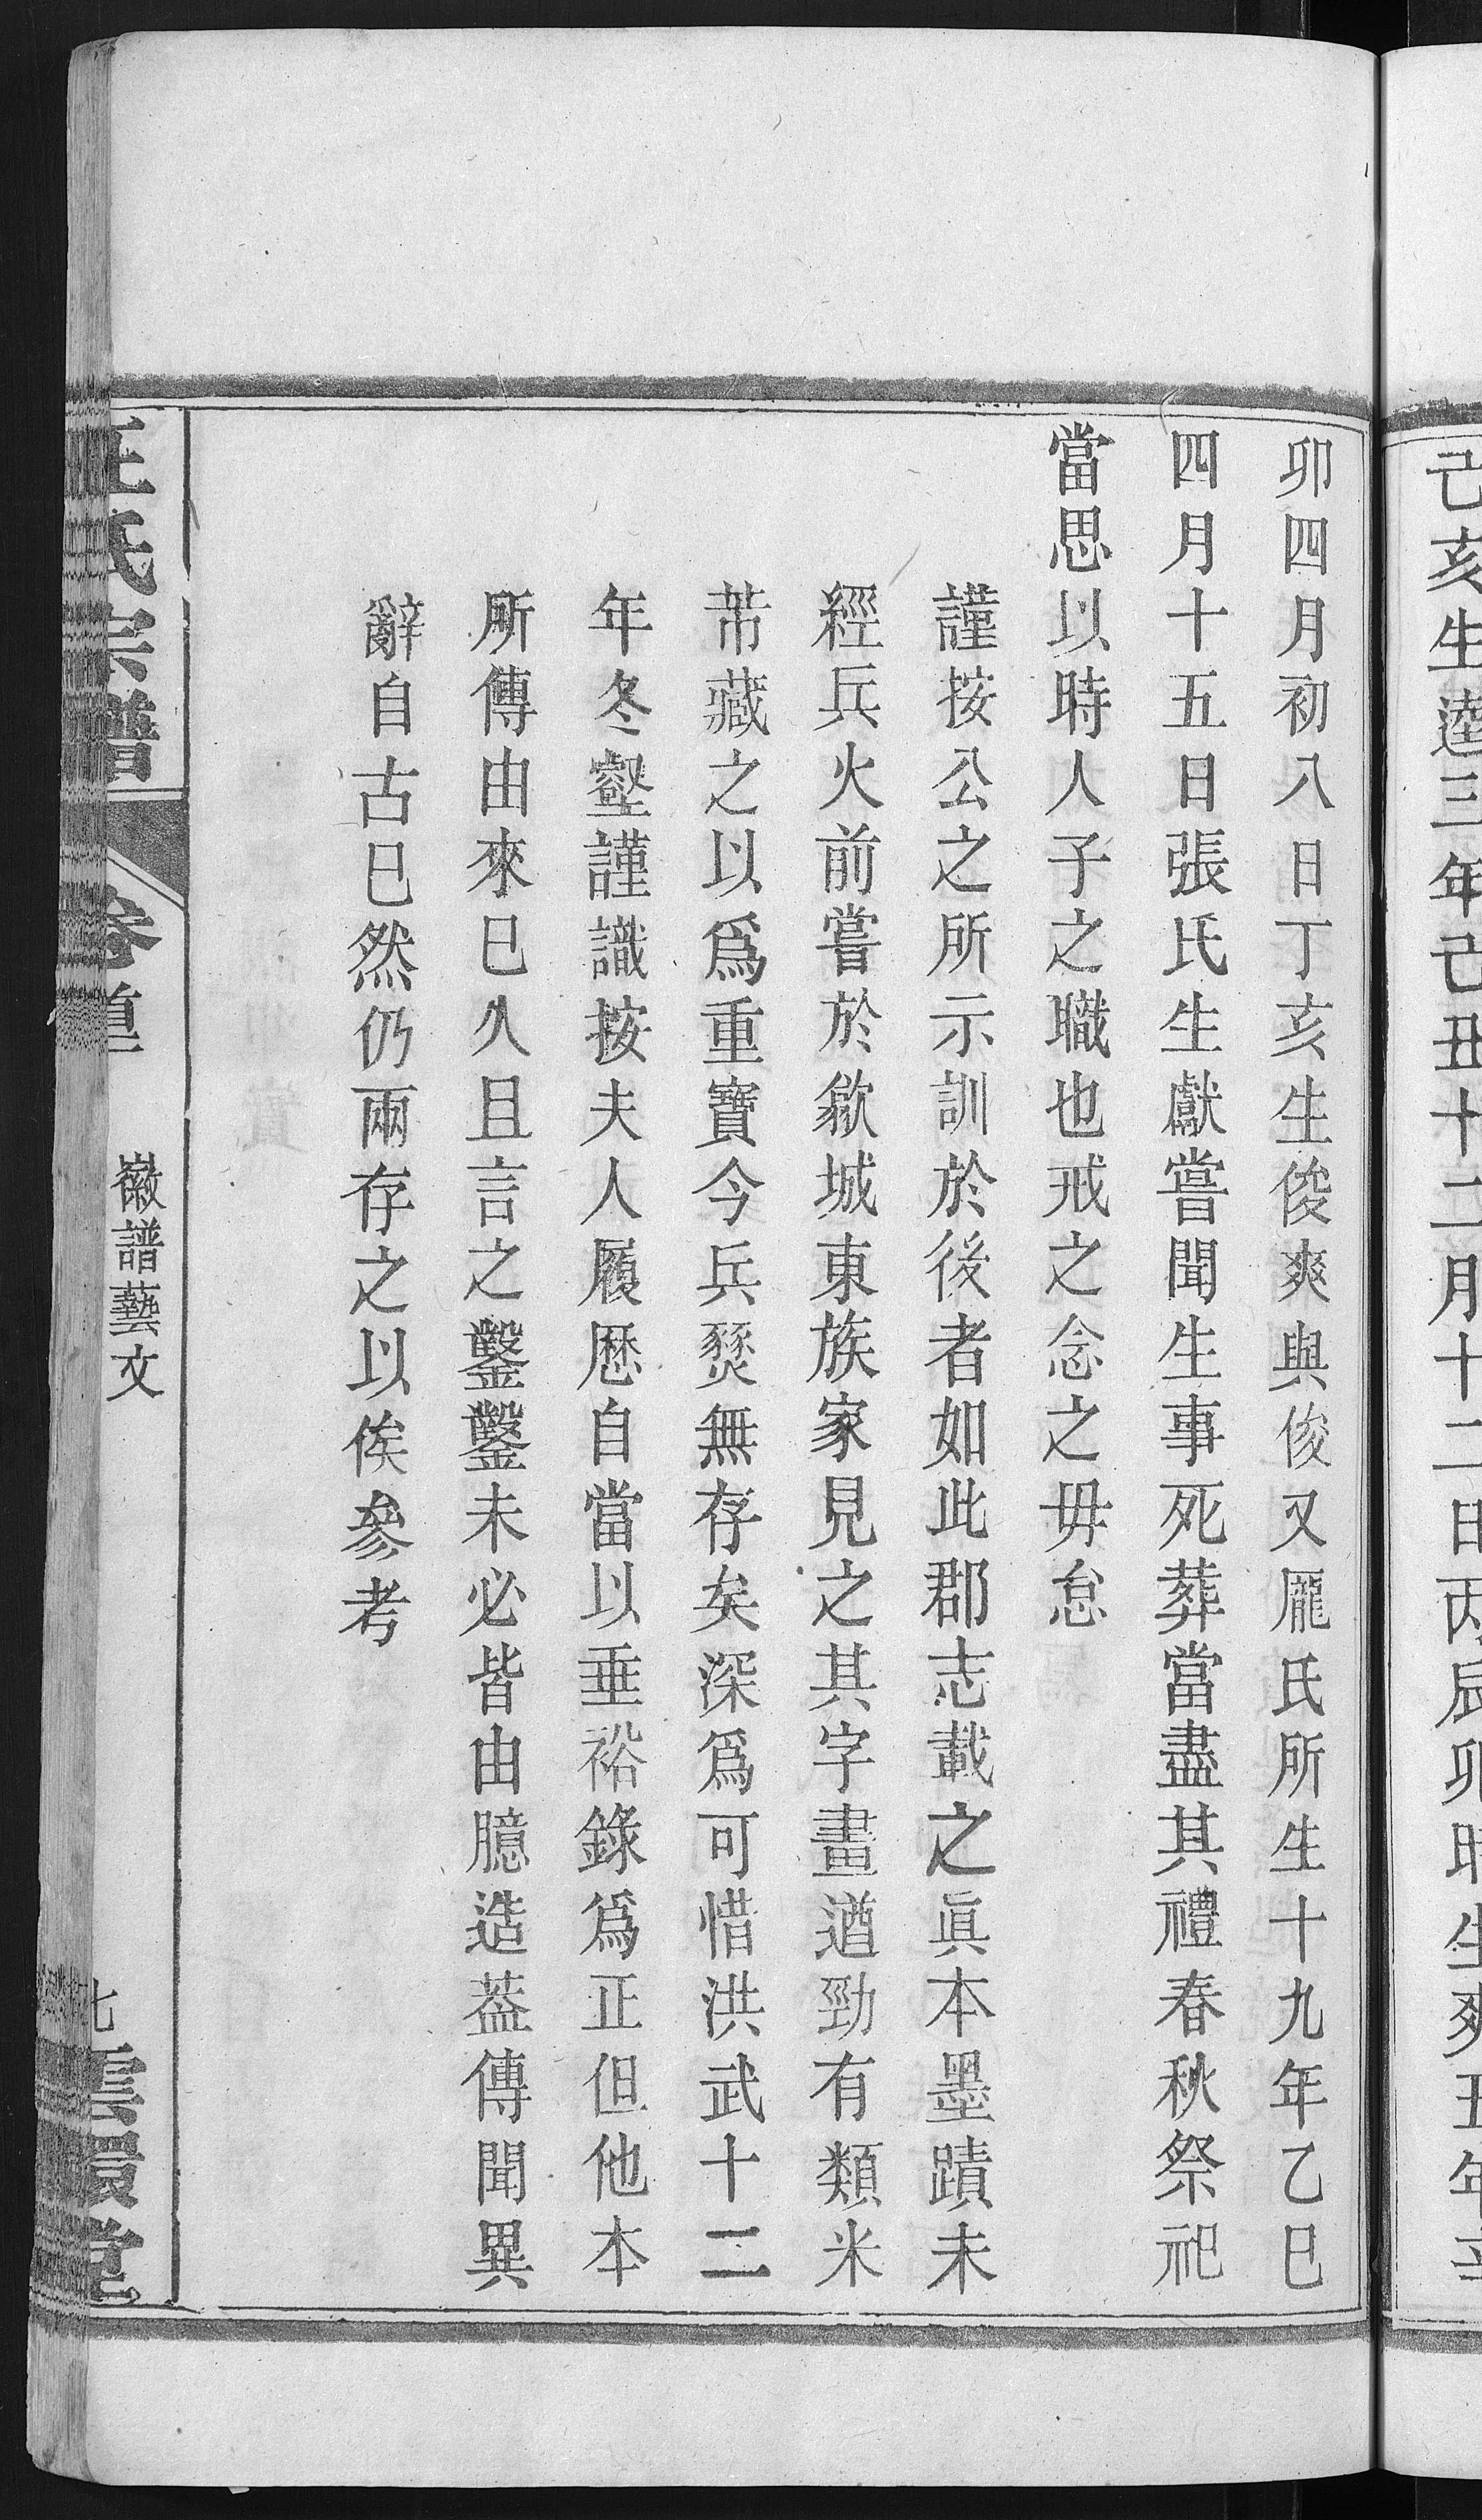 己亥生達三年己丑十二月十二日丙辰卯時生爽五年辛
卯四月初八日丁亥生俊爽與俊又龎氏所生十九年乙巳
四月十五日張氏生獻嘗聞生事死葬當盡其禮春秋祭祀
當思以時人子之職也戒之念之毋怠
謹按公之所示訓於後者如此郡志載之眞本墨蹟未
經兵火前嘗於歙城東族家見之其字畫遒勁有類米
芾藏之以爲重寶今兵燹無存矣深爲可惜洪武十二
年冬壑謹識按夫人履歷自當以垂裕錄爲正但他本
所傳由來已久且言之鑿鑿未必皆由臆造葢傳聞異
辭自古已然仍兩存之以俟參考
汪氏宗譜
卷首
徽譜藝文
七
雲環堂